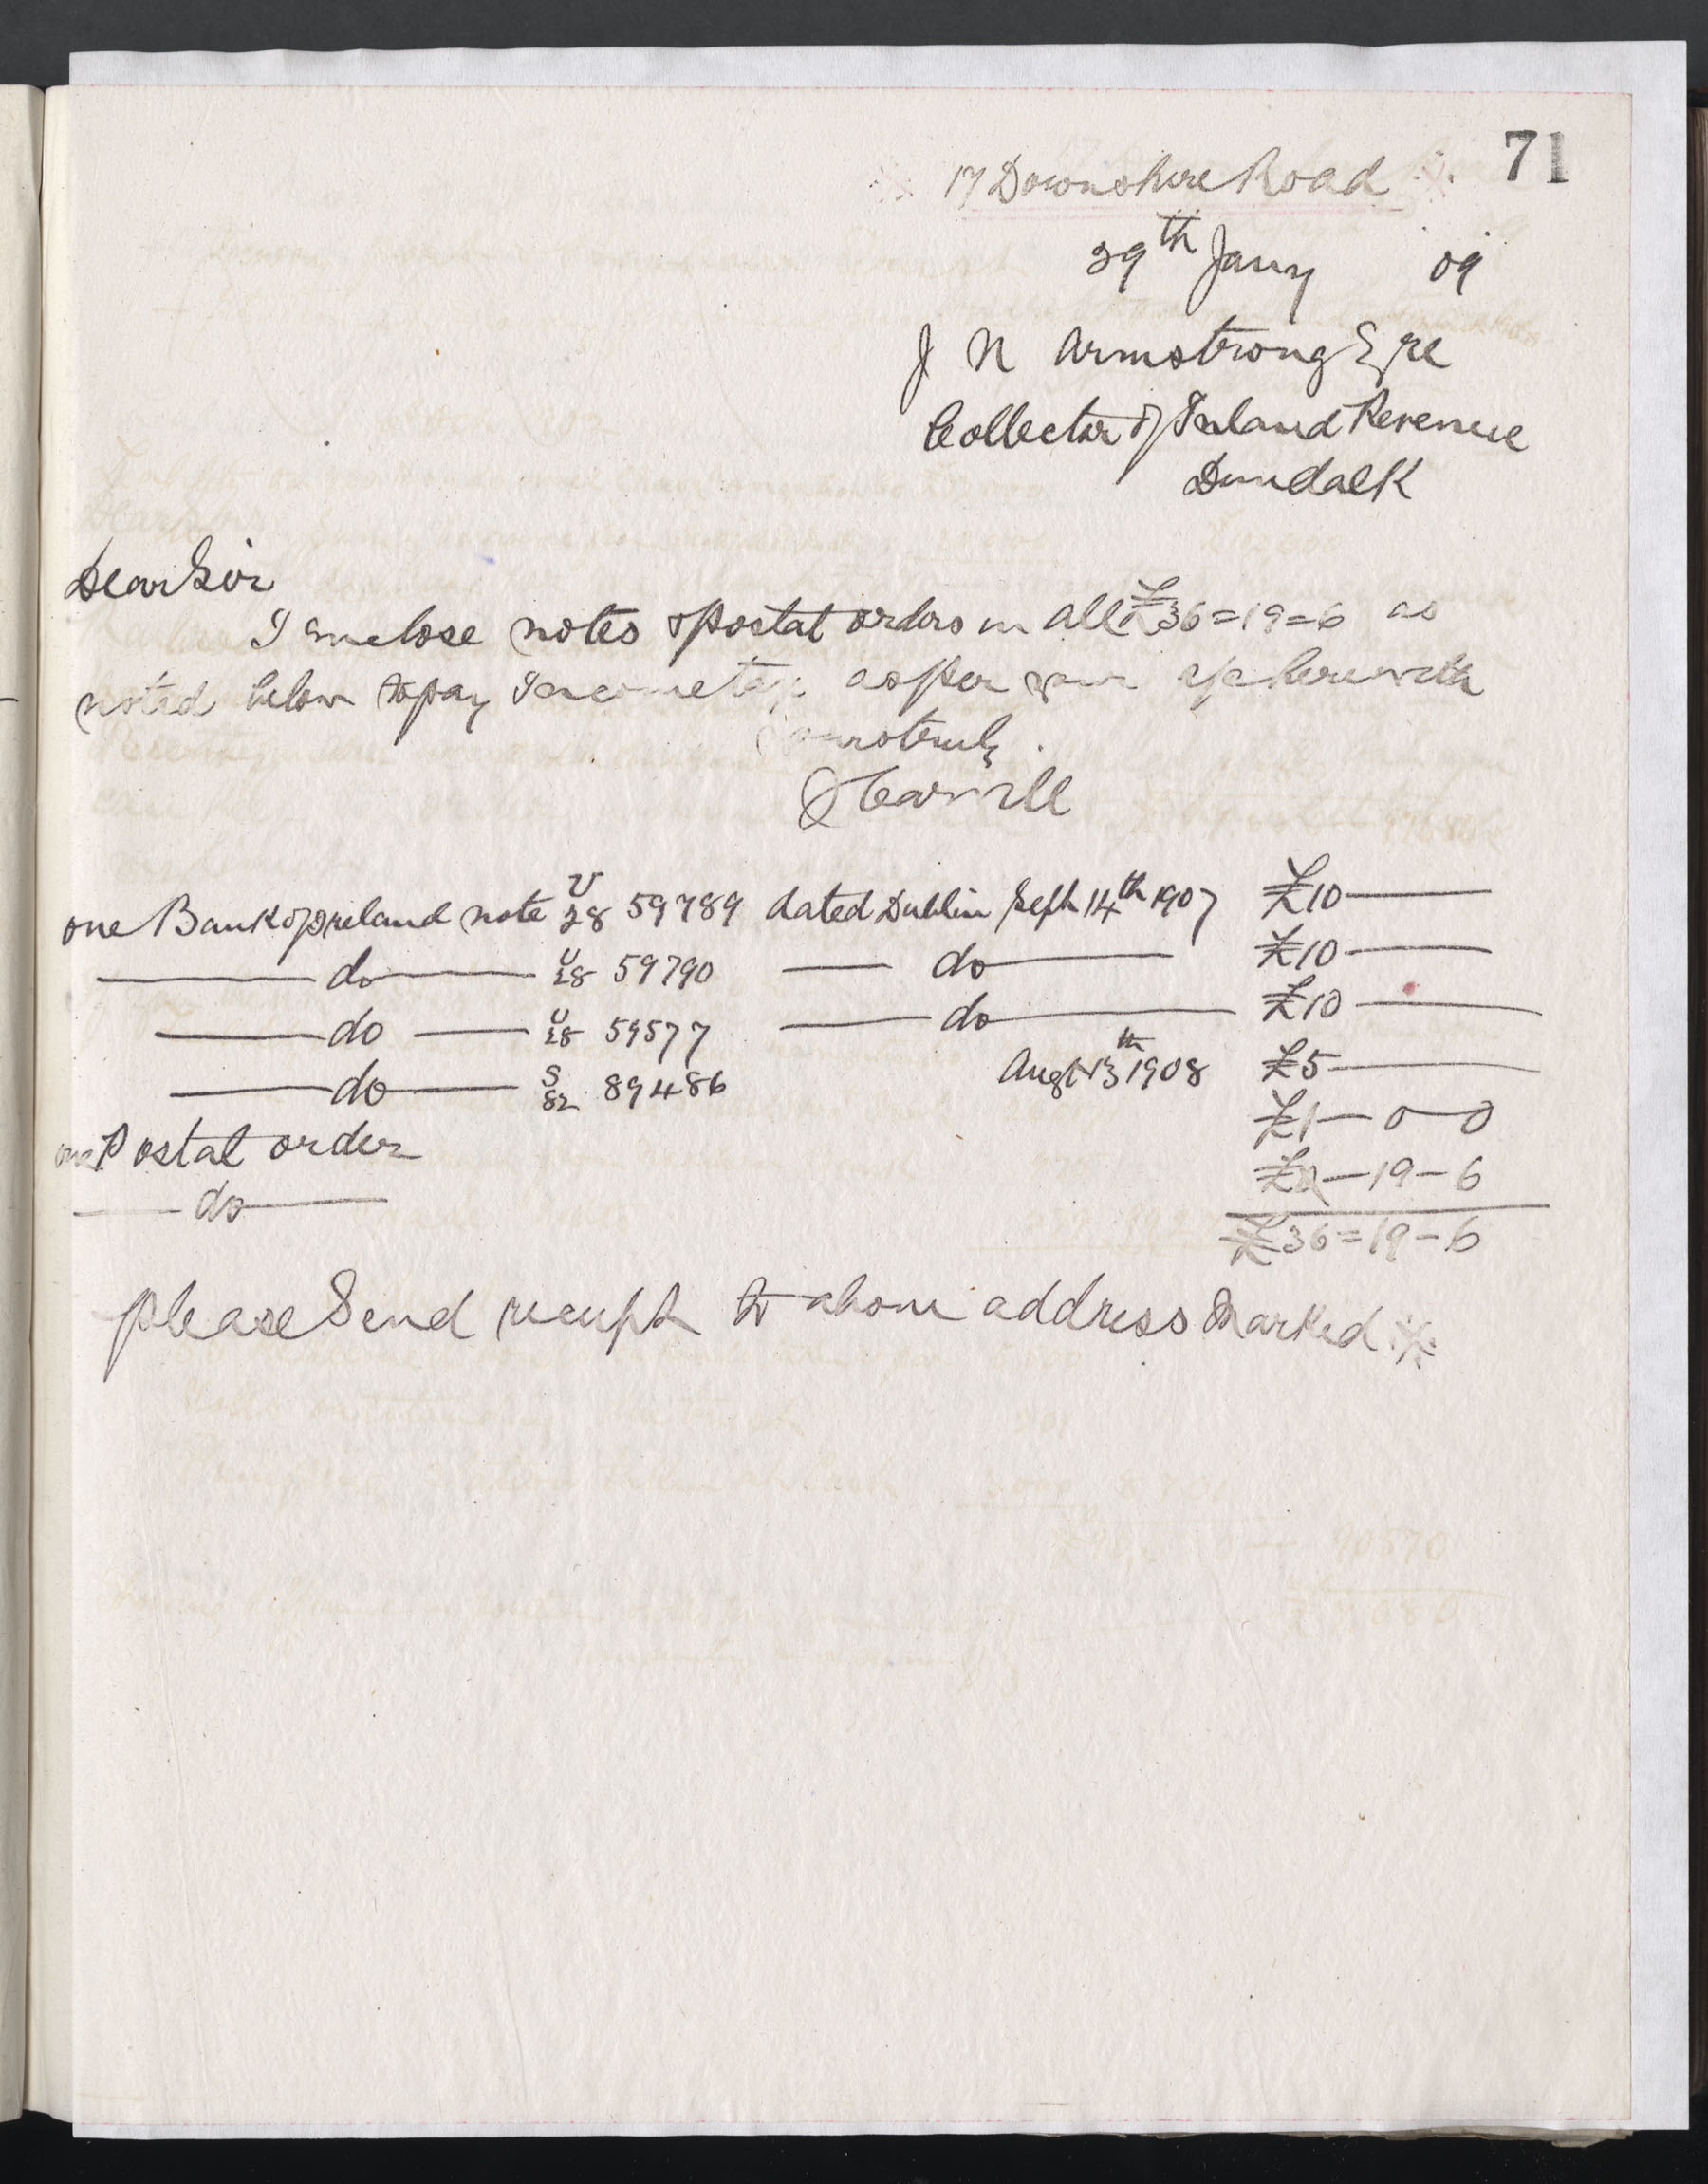 71
※ 17 Downshire Road ※
29th Jany 09
J N Armstrong Esqre
Collector of Inland Revenue
Dundalk
Dear Sir
I enclose notes & Postal orders in all £36=19=6 as
noted below to pay Income tax as per your a/c herewith
Yours truly
J Carvill
one Bank of Ireland note U/28 59789 dated Dublin Sept 14th 1907 £10 —
— do — U/28 59790 — do — £10 —
— do — U/28 59577 — do — £10 —
— do — S/82 89486 Augt 13th 1908 £5 —
one Postal order £1 — 0 — 0
— do — £0 — 19 — 6
£36=19-6
please Send receipt to above address Marked ※